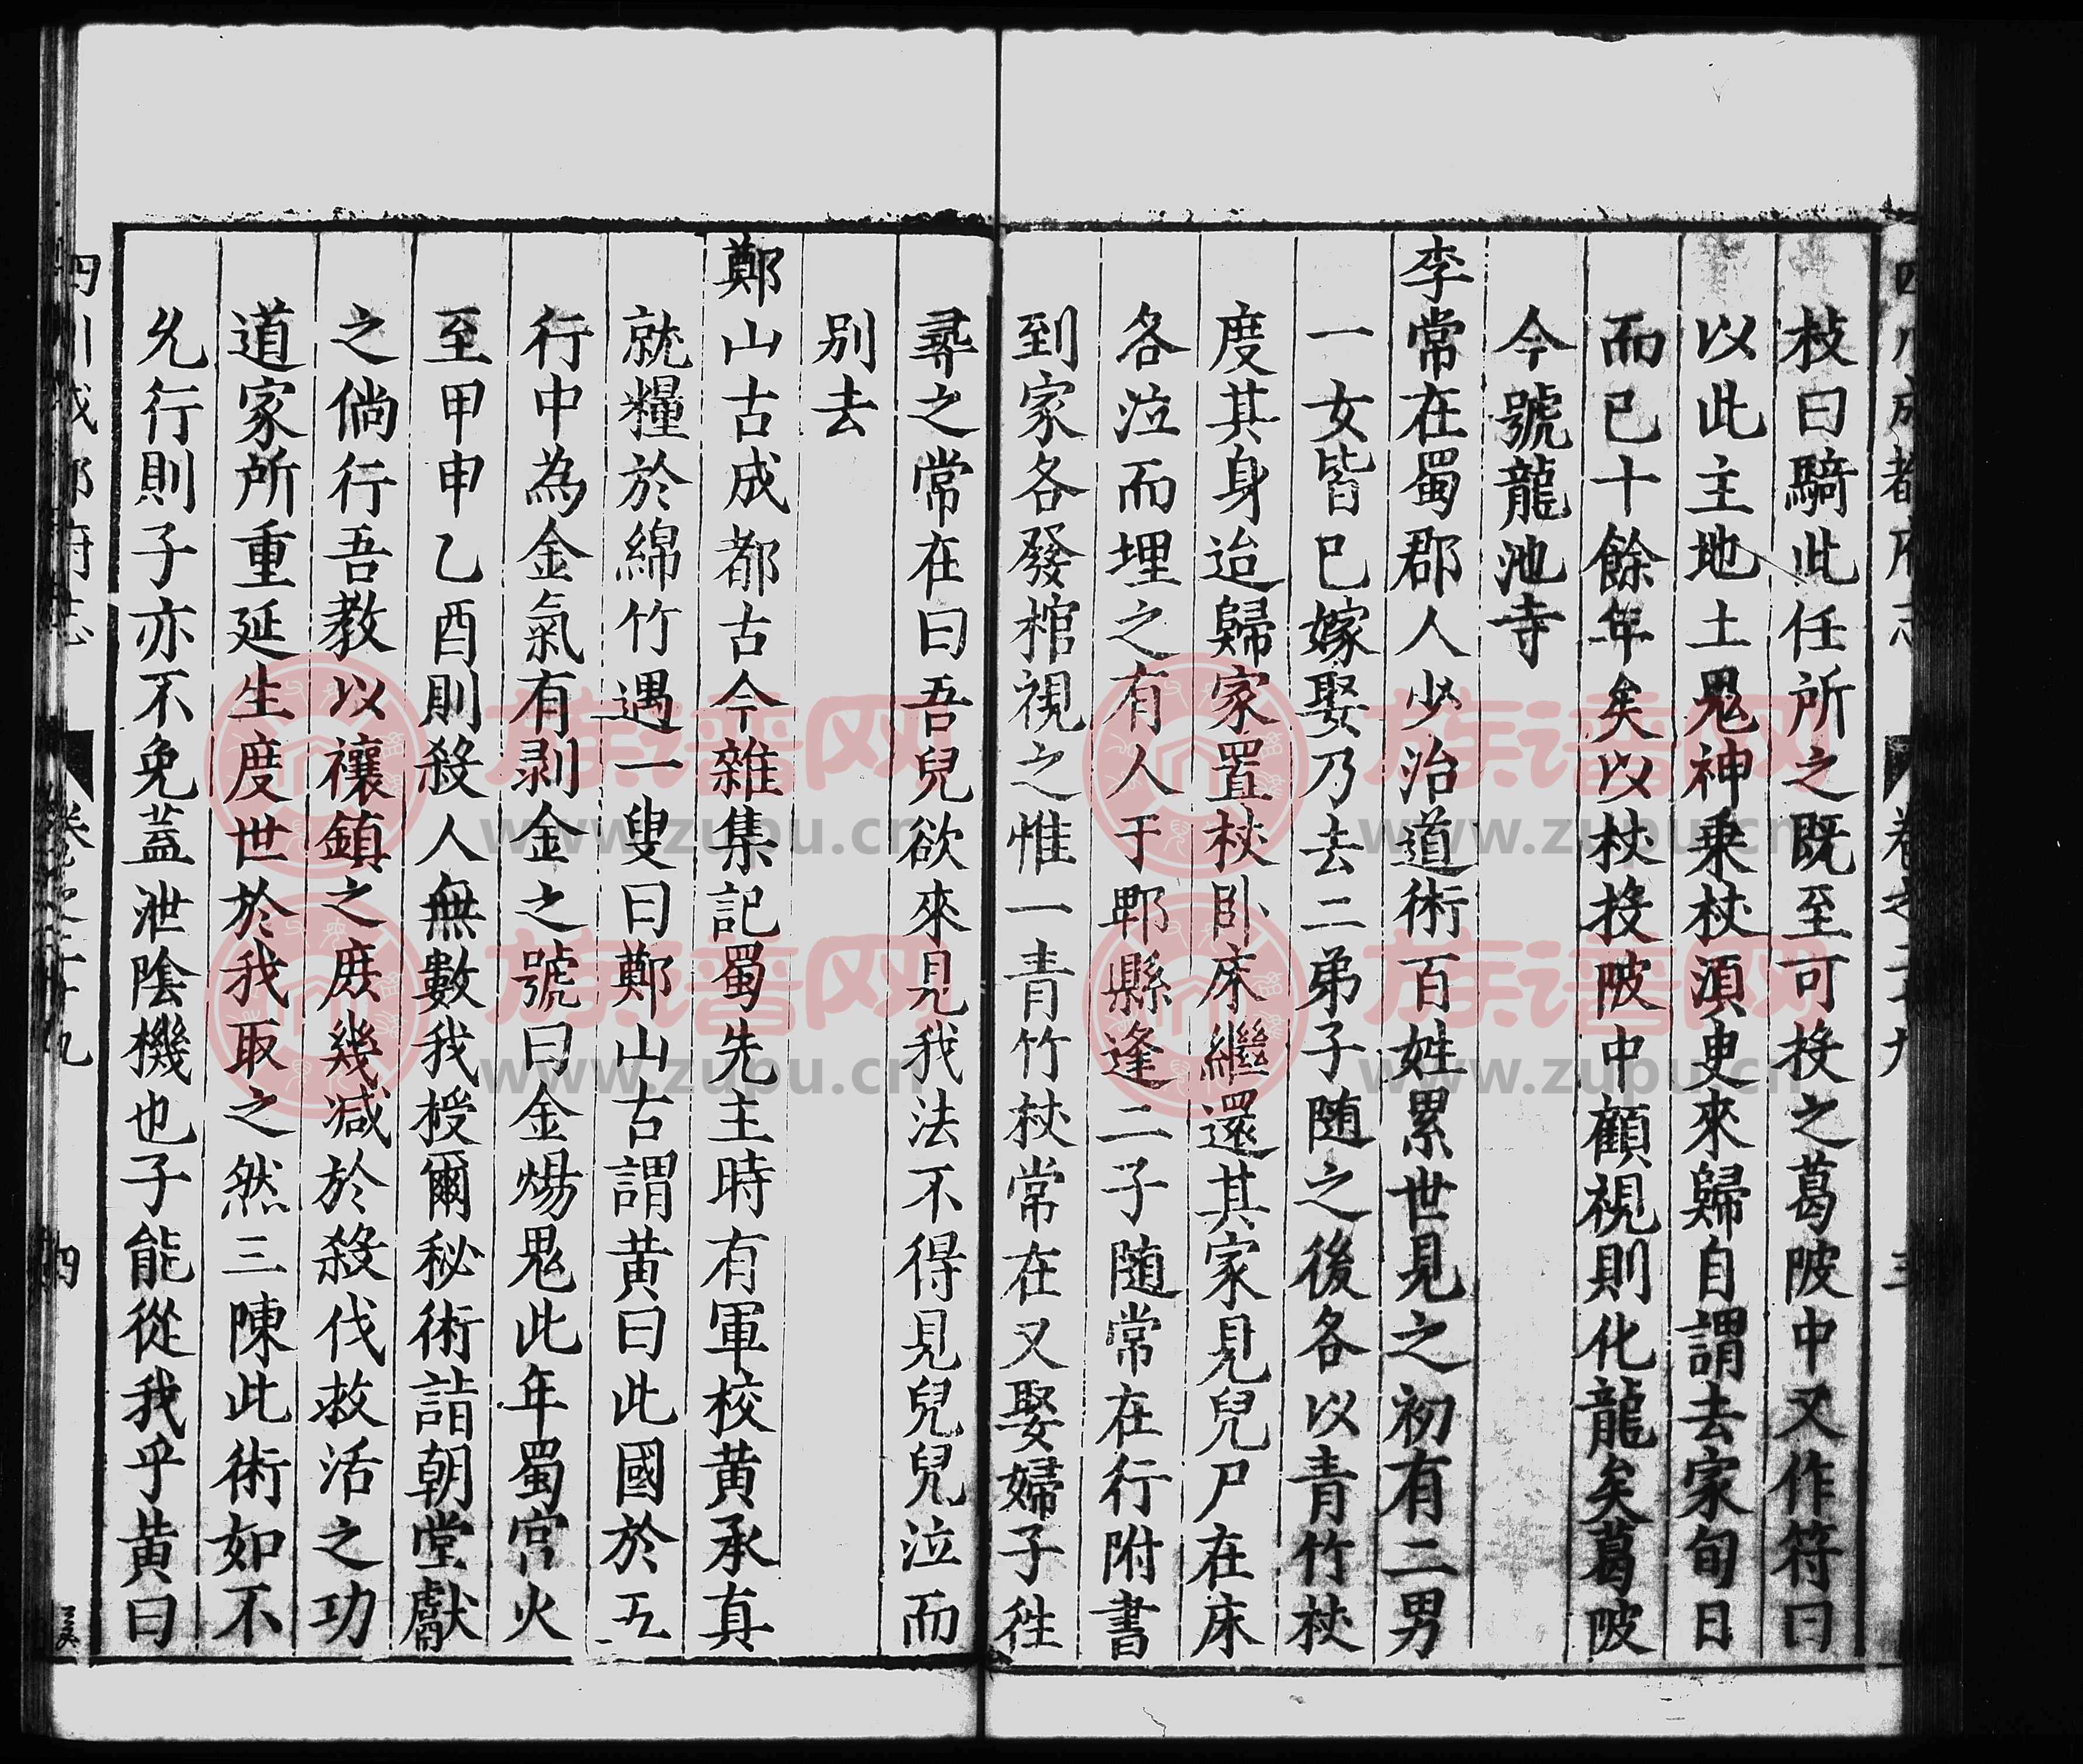 枝曰騎此任所之既至可投之葛陂中又作符曰
以此主地土鬼神乗杖湏史來歸自謂去家旬日
而已十餘年矣以杖投陂中顧視則化龍矣葛陂
今號龍池寺
李常在蜀郡人少治道術百姓累世見之初有二男
一女皆已嫁娶乃去二弟子随之後各以青竹杖
度其身迨歸家置杖卧床繼還其家見兒尸在床
各泣而埋之有人于郫縣逢二子随常在行附書
到家各發棺視之惟一青竹杖常在又娶婦子徃
尋之常在曰吾兒欲來見我法不得見兒兒泣而
别去
鄭山古成都古今雜集記蜀先主時有軍校黄承真
就糧於綿竹遇一叟曰鄭山古謂黄曰此國於五
行中為金氣有剥金之號曰金煬鬼此年蜀宫火
至甲申乙酉則殺人無數我授爾秘術詣朝堂獻
之倘行吾教以禳鎮之庶幾减於殺伐救活之功
道家所重延生度世於我取之然三陳此術如不
允行則子亦不免蓋泄陰機也子能從我乎黄曰
四川成都府志
卷之二十九
三
四川成都府志
卷之二十九
四
族谱网
www.zupu.cn
族谱网
www.zupu.cn
族谱网
www.zupu.cn
族谱网
www.zupu.cn